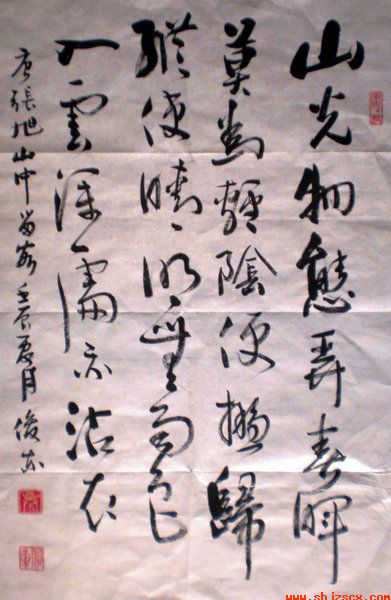 山光物態弄春暉
莫為輕陰便擬歸
縱使晴明無雨色
入雲深處亦沾衣
唐張旭山中留客壬辰夏月俊
www.shjzscx.com